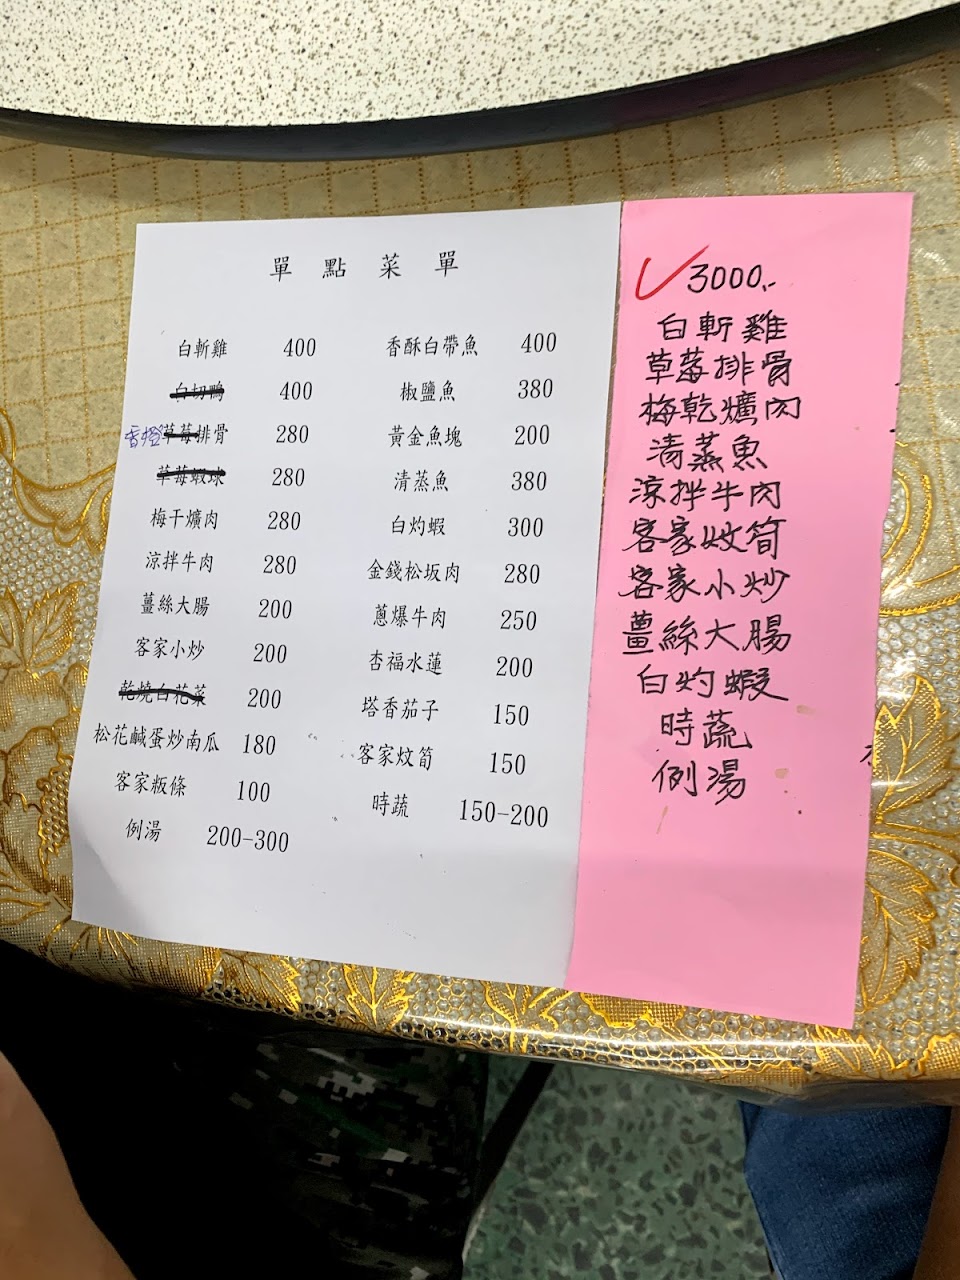 單點菜單
白斬雞 400
白切鴨 400
香橙草莓排骨 280
草莓蝦球 280
梅干爌肉 280
涼拌牛肉 280
薑絲大腸 200
客家小炒 200
乾燒白花菜 200
松花鹹蛋炒南瓜 180
客家粄條 100
例湯 200-300
香酥白帶魚 400
椒鹽魚 380
黃金魚塊 200
清蒸魚 380
白灼蝦 300
金錢松坂肉 280
蔥爆牛肉 250
杏福水蓮 200
塔香茄子 150
客家炆筍 150
時蔬 150-200
3000.-
白斬雞
草莓排骨
梅乾爌肉
清蒸魚
涼拌牛肉
客家炆筍
客家小炒
薑絲大腸
白灼蝦
時蔬
例湯